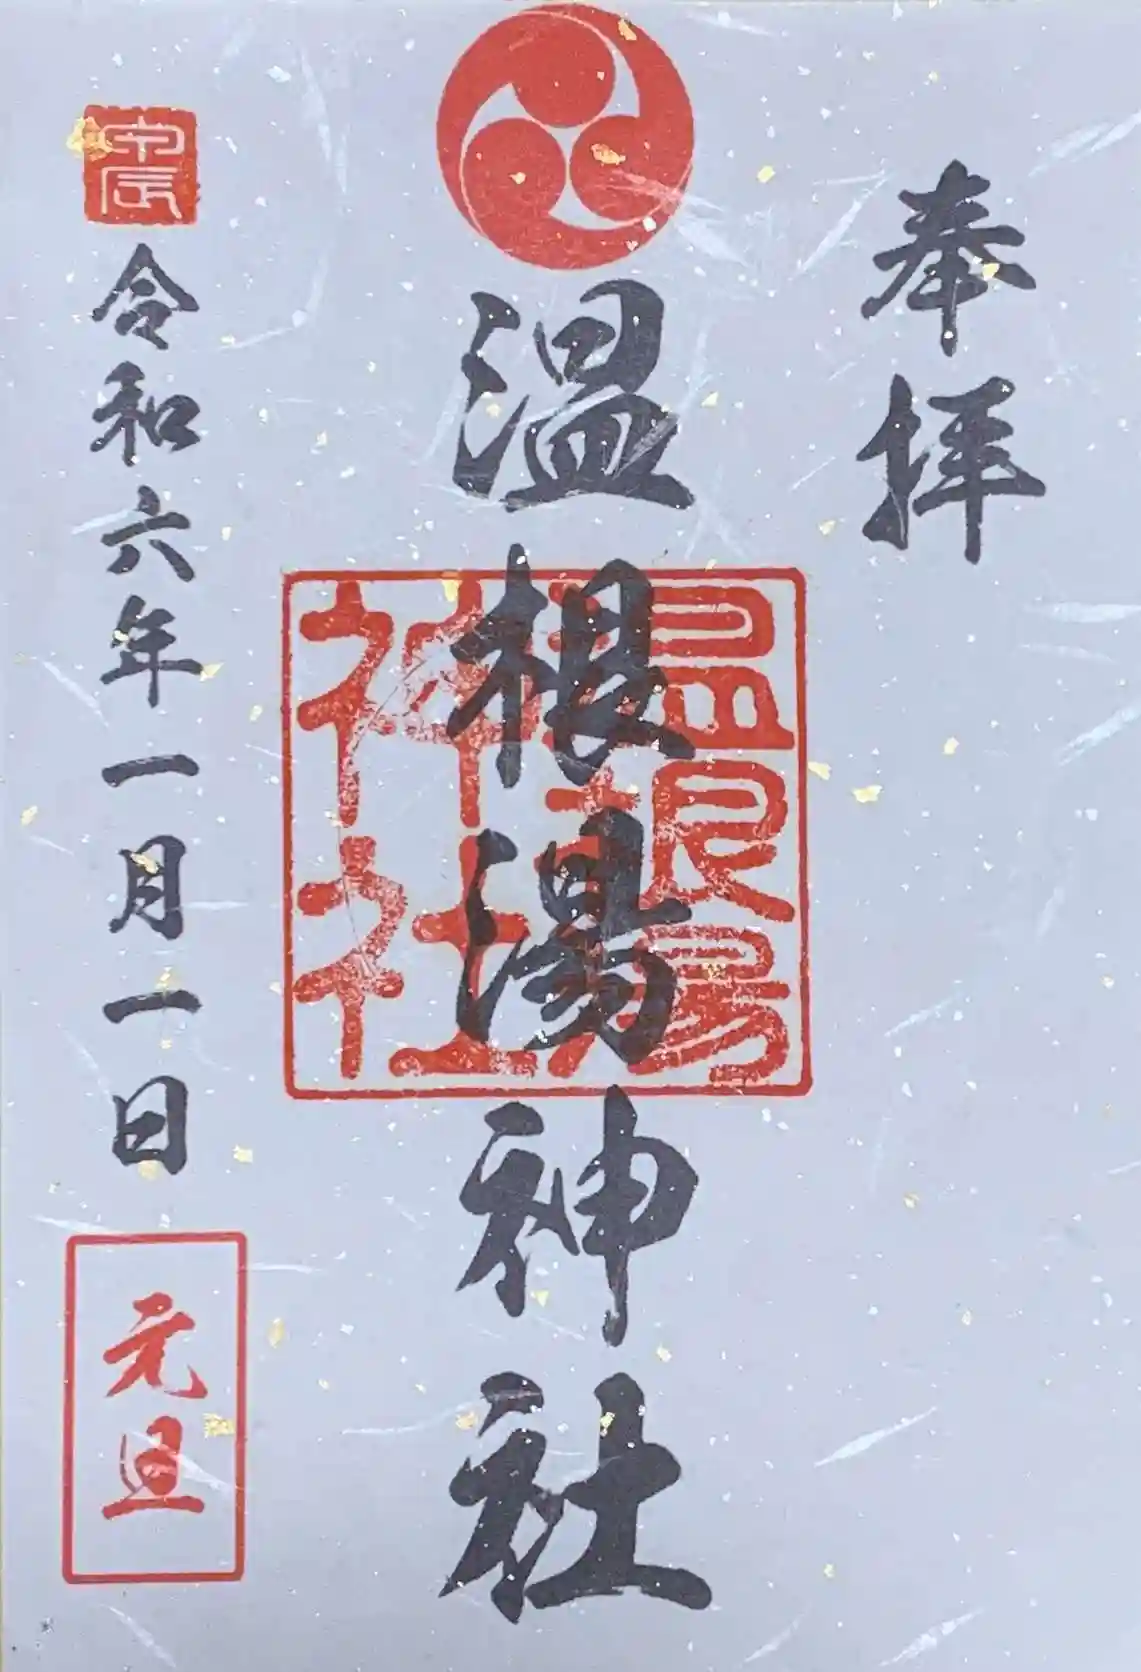 奉拝
温根湯神社
温根湯
神社
甲辰
令和六年一月一日
元旦